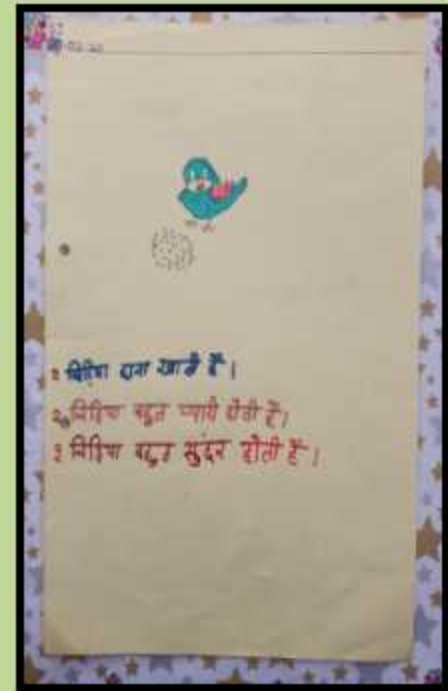 १ चिड़िया दाना खाती है।
2. चिड़िया बहुत प्यारी होती हैं।
३ चिड़िया बहुत सुंदर होती हैं।